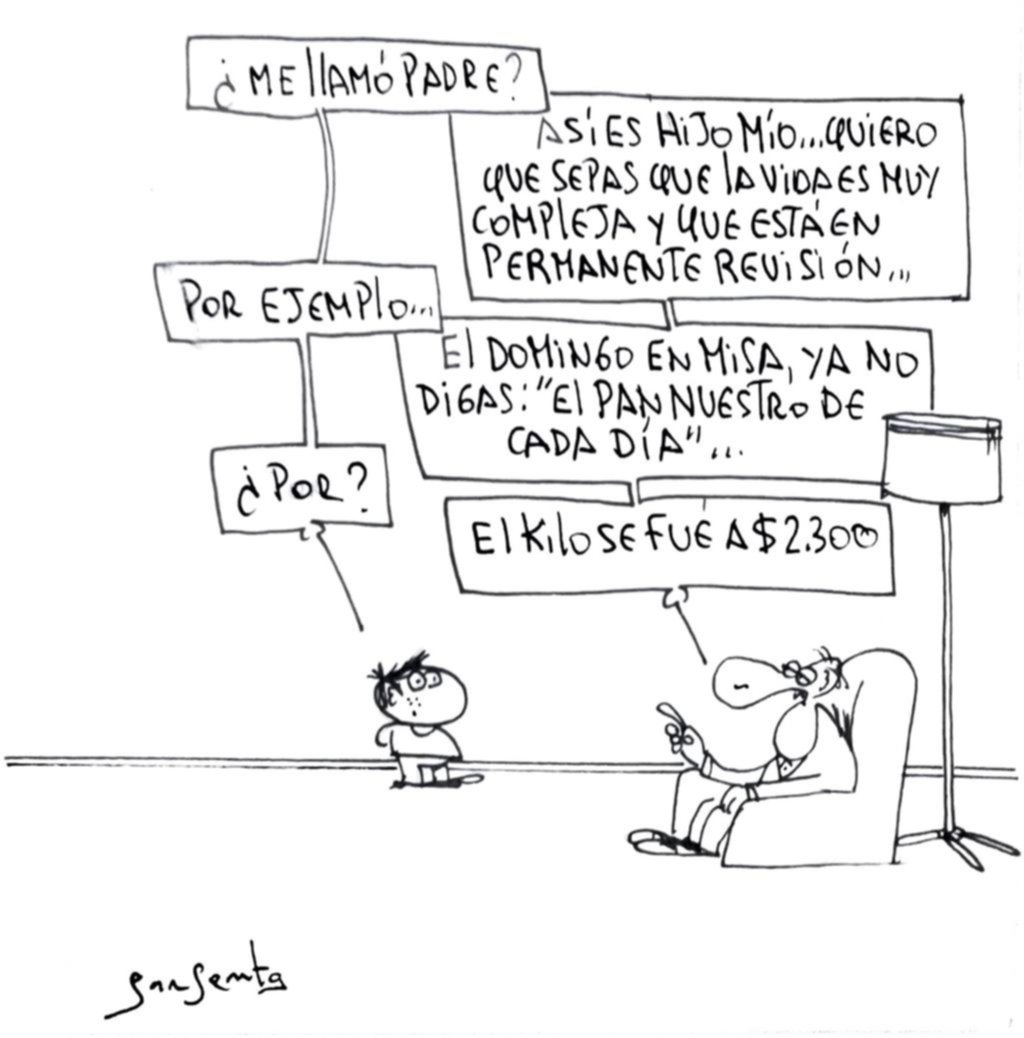 ¿ME llAMÓ PADRE?
ASÍ ES HIJO MÍO...QUIERO
QUE SEPAS QUE LA VIDA ES MUY
COMPLEJA Y QUE ESTÁ EN
PERMANENTE REVISIÓN...
POR EJEMPLO...
El DOMINGO EN MISA, YA NO
DIGAS: "El PAN NUESTRO DE
CADA DÍA"...
¿POR?
El KILO SE FUÉ A $2.300